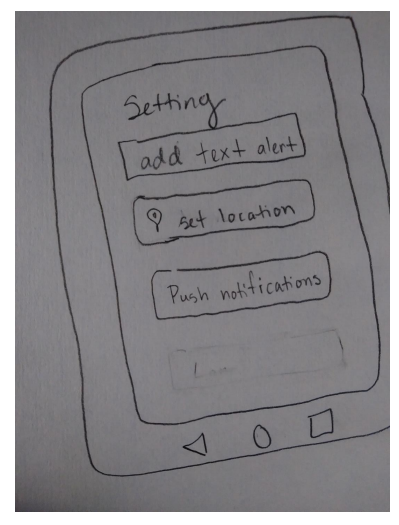 Setting
add text alert
set location
Push notifications